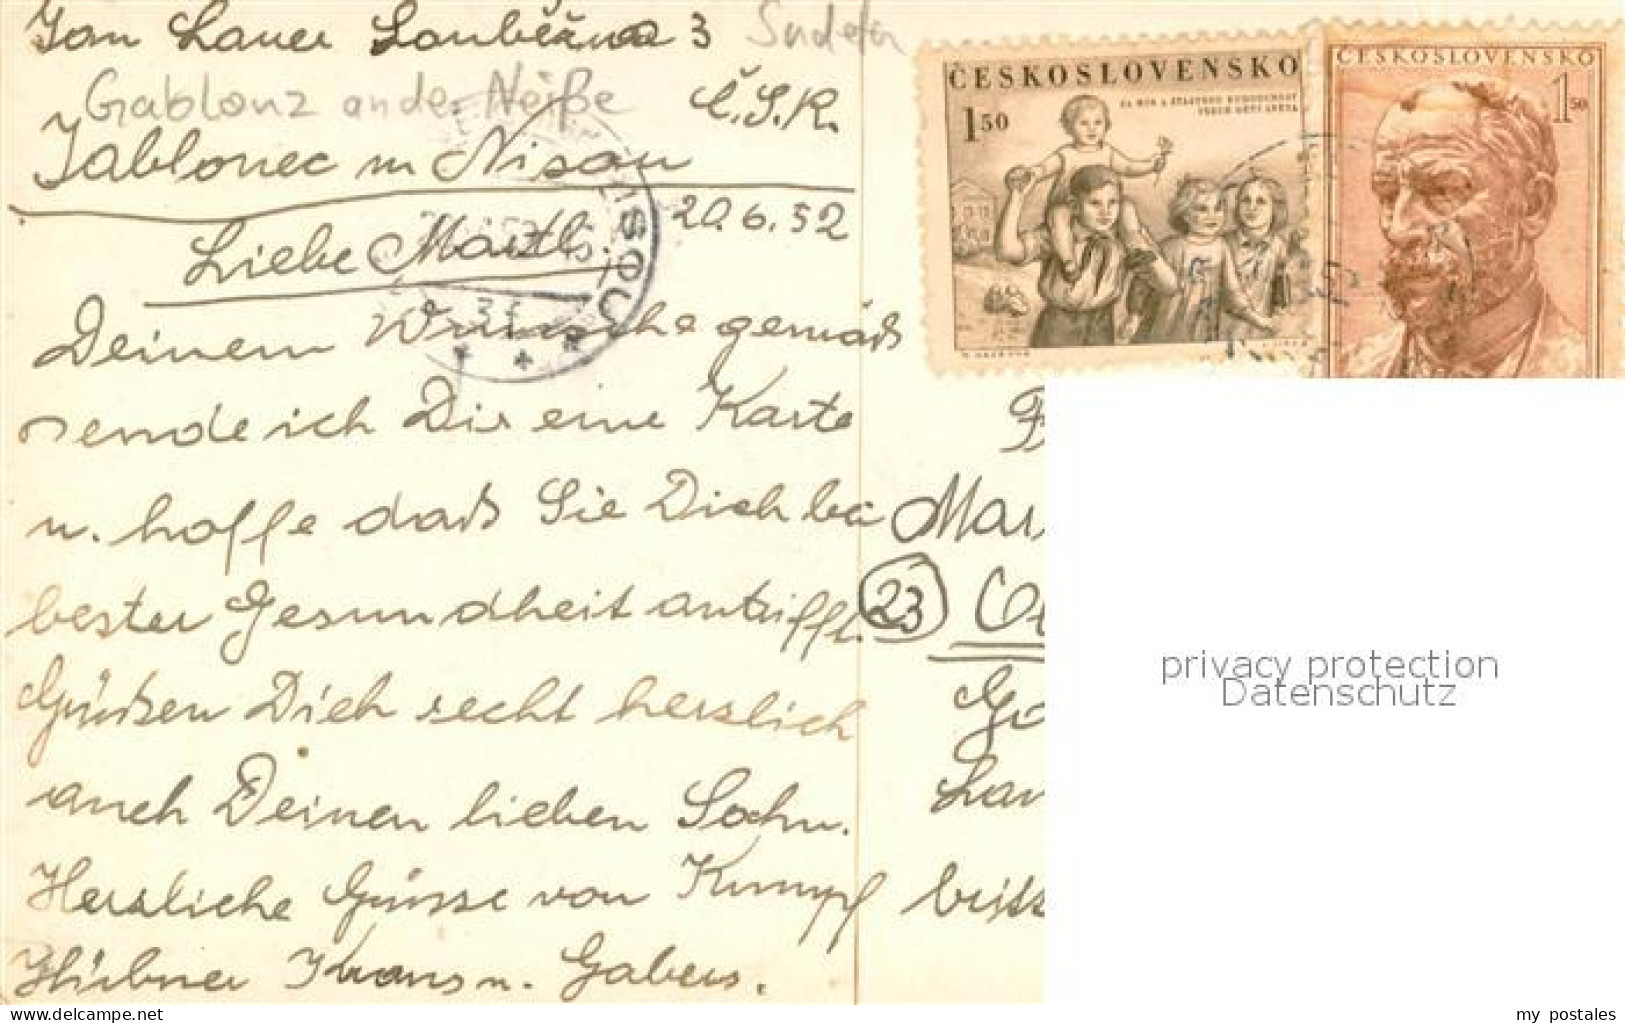 Jan Lauer Louběžná 3 Sudeten
Gablonz an der Neiße
Č.S.R.
Jablonec n Nisou
20.6.52
Liebe Martl.
NISOU
Deinem Wunsche gemäß
sende ich Dir eine Karte
u. hoffe daß Sie Dich bei
bester Gesundheit antrifft.
Grüßen Dich recht herzlich
auch Deinen lieben Sohn.
Herzliche Grüsse von Kumpf
Hübner Krans u. Gabers.
ČESKOSLOVENSKO
1 50
ČESKOSLOVENSKO
1 50
Mar
23
Go
Lan
privacy protection
Datenschutz
www.delcampe.net
my_postales